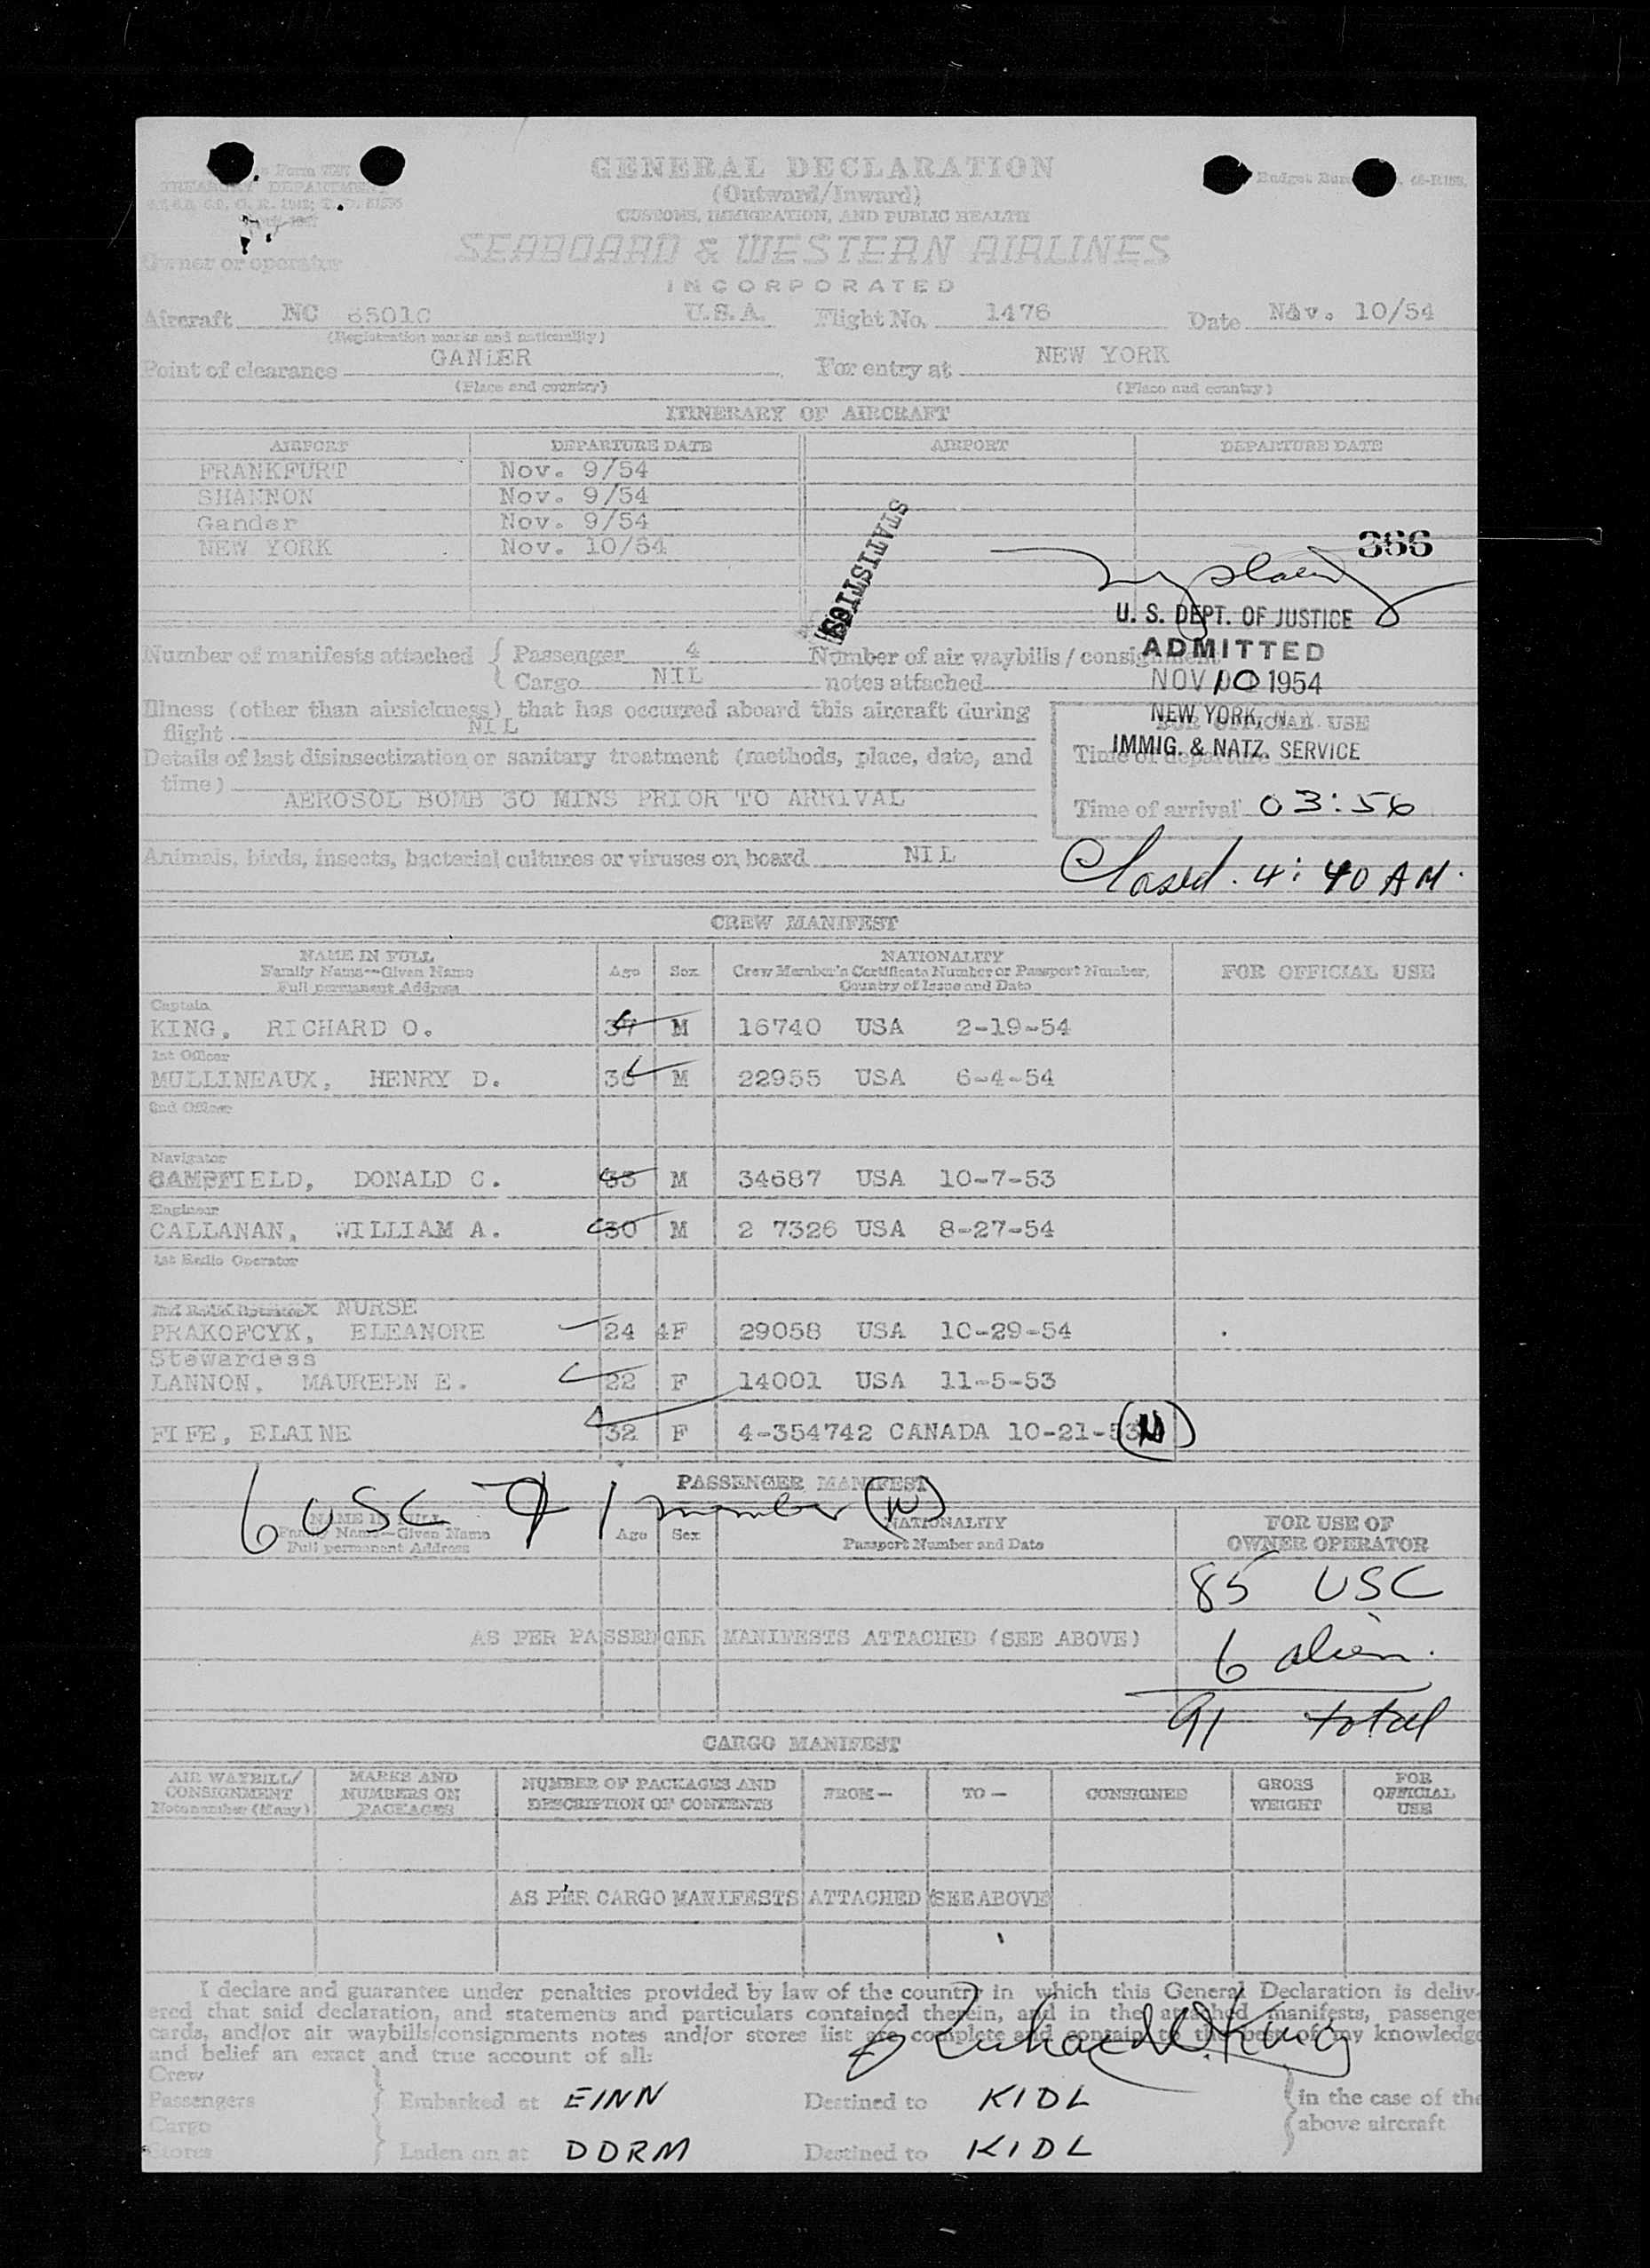 GENERAL DECLARATION
(Outward/Inward)
CUSTOMS, IMMIGRATION, AND PUBLIC HEALTH
TREASURY DEPARTMENT
Owner or operator SEABOARD & WESTERN AIRLINES
INCORPORATED
Aircraft NC 6501C U.S.A. Flight No. 1476 Date Nov. 10/54
(Registration marks and nationality)
Point of clearance GANDER For entry at NEW YORK
(Place and country) (Place and country)
ITINERARY OF AIRCRAFT
AIRPORT DEPARTURE DATE AIRPORT DEPARTURE DATE
FRANKFURT Nov. 9/54
SHANNON Nov. 9/54
Gander Nov. 9/54
NEW YORK Nov. 10/54
STATISTICS
366
U. S. DEPT. OF JUSTICE
ADMITTED
NOV 10 1954
NEW YORK, N. Y.
IMMIG. & NATZ. SERVICE
Number of manifests attached Passenger 4 Number of air waybills / consignment
Cargo NIL notes attached
Illness (other than airsickness) that has occurred aboard this aircraft during
flight NIL
FOR OFFICIAL USE
Details of last disinsectization or sanitary treatment (methods, place, date, and
time) AEROSOL BOMB 30 MINS PRIOR TO ARRIVAL
Time of departure
Time of arrival 03:56
Animals, birds, insects, bacterial cultures or viruses on board NIL
Closed. 4:40 AM.
CREW MANIFEST
NAME IN FULL
Family Name--Given Name
Full permanent Address
Age Sex
NATIONALITY
Crew Member's Certificate Number or Passport Number,
Country of Issue and Date
FOR OFFICIAL USE
Captain
KING, RICHARD O. 37 M 16740 USA 2-19-54
1st Officer
MULLINEAUX, HENRY D. 36 M 22955 USA 6-4-54
2nd Officer
Navigator
CAMPFIELD, DONALD C. 33 M 34687 USA 10-7-53
Engineer
CALLANAN, WILLIAM A. 30 M 2 7326 USA 8-27-54
1st Radio Operator
2nd Radio Operator NURSE
PRAKOFCYK, ELEANORE 24 F 29058 USA 10-29-54
Stewardess
LANNON, MAUREEN E. 22 F 14001 USA 11-5-53
FIFE, ELAINE 32 F 4-354742 CANADA 10-21-53 (N)
PASSENGER MANIFEST
6 USC & 1 member (N)
NAME IN FULL
Family Name--Given Name
Full permanent Address
Age Sex
NATIONALITY
Passport Number and Date
FOR USE OF
OWNER OPERATOR
85 USC
AS PER PASSENGER MANIFESTS ATTACHED (SEE ABOVE)
6 alien.
91 total
CARGO MANIFEST
AIR WAYBILL/
CONSIGNMENT
Note number (if any)
MARKS AND
NUMBERS ON
PACKAGES
NUMBER OF PACKAGES AND
DESCRIPTION OF CONTENTS
FROM— TO— CONSIGNEE
GROSS
WEIGHT
FOR
OFFICIAL
USE
AS PER CARGO MANIFESTS ATTACHED (SEE ABOVE
I declare and guarantee under penalties provided by law of the country in which this General Declaration is deliv-
ered that said declaration, and statements and particulars contained therein, and in the attached manifests, passenger
cards, and/or air waybills/consignments notes and/or stores list are complete and contain to the best of my knowledge
and belief an exact and true account of all:
Richard O. King
Crew
Passengers Embarked at EINN Destined to KIDL in the case of the
Cargo above aircraft
Stores Laden on at DDRM Destined to KIDL